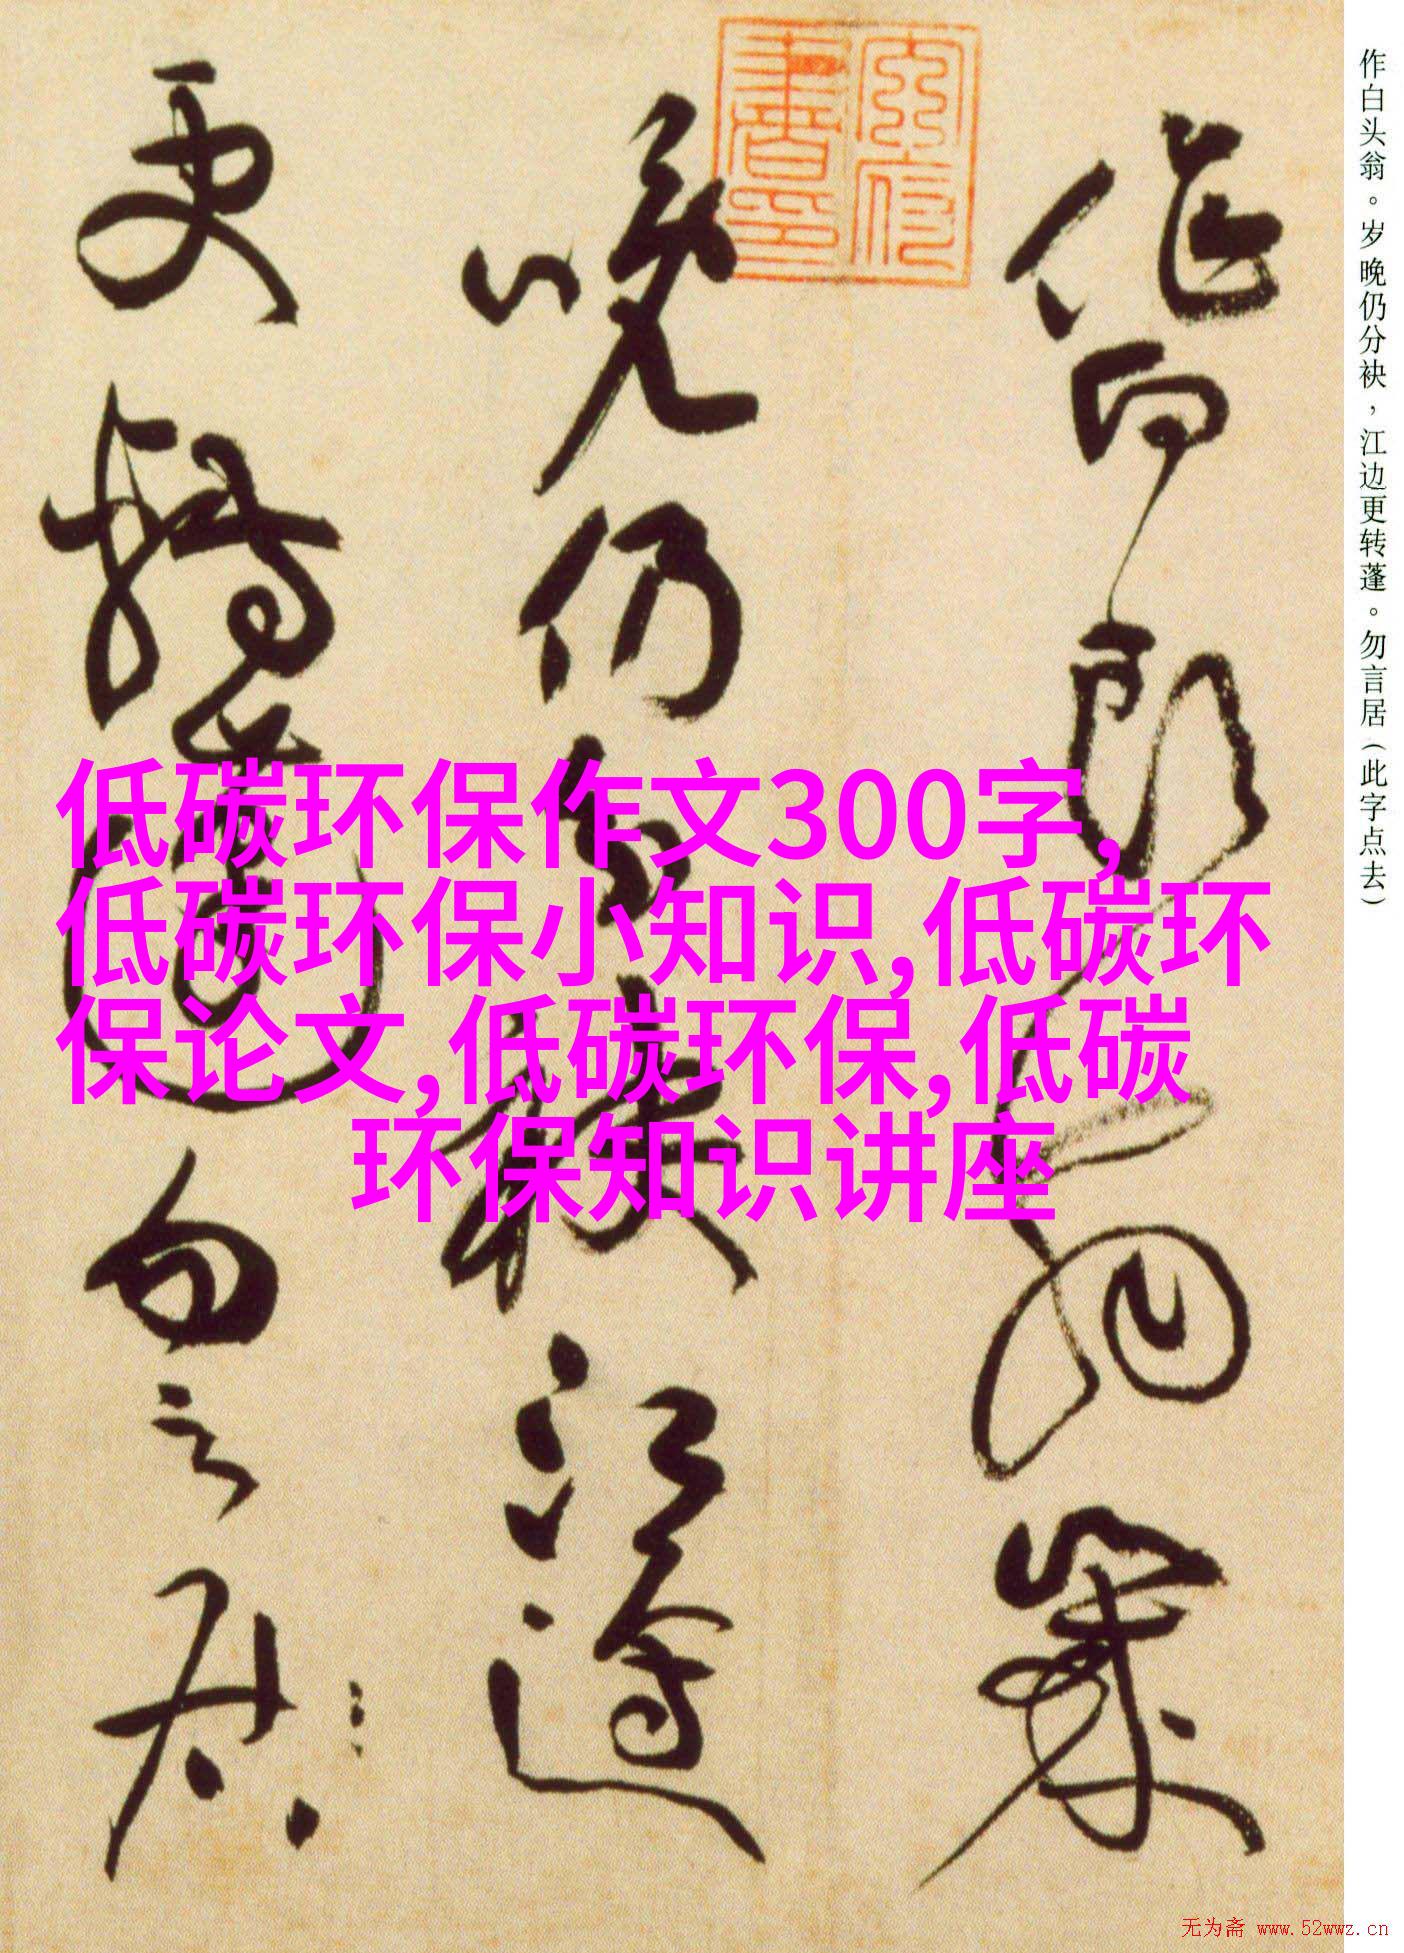 作白头翁。岁晚仍分袂，江边更转蓬。勿言居（此字点去）
作白头翁岁
晚仍分袂江边
更转蓬勿言居
低碳环保作文300字,
低碳环保小知识,低碳环
保论文,低碳环保,低碳
环保知识讲座
无为斋 www.52wwz.cn